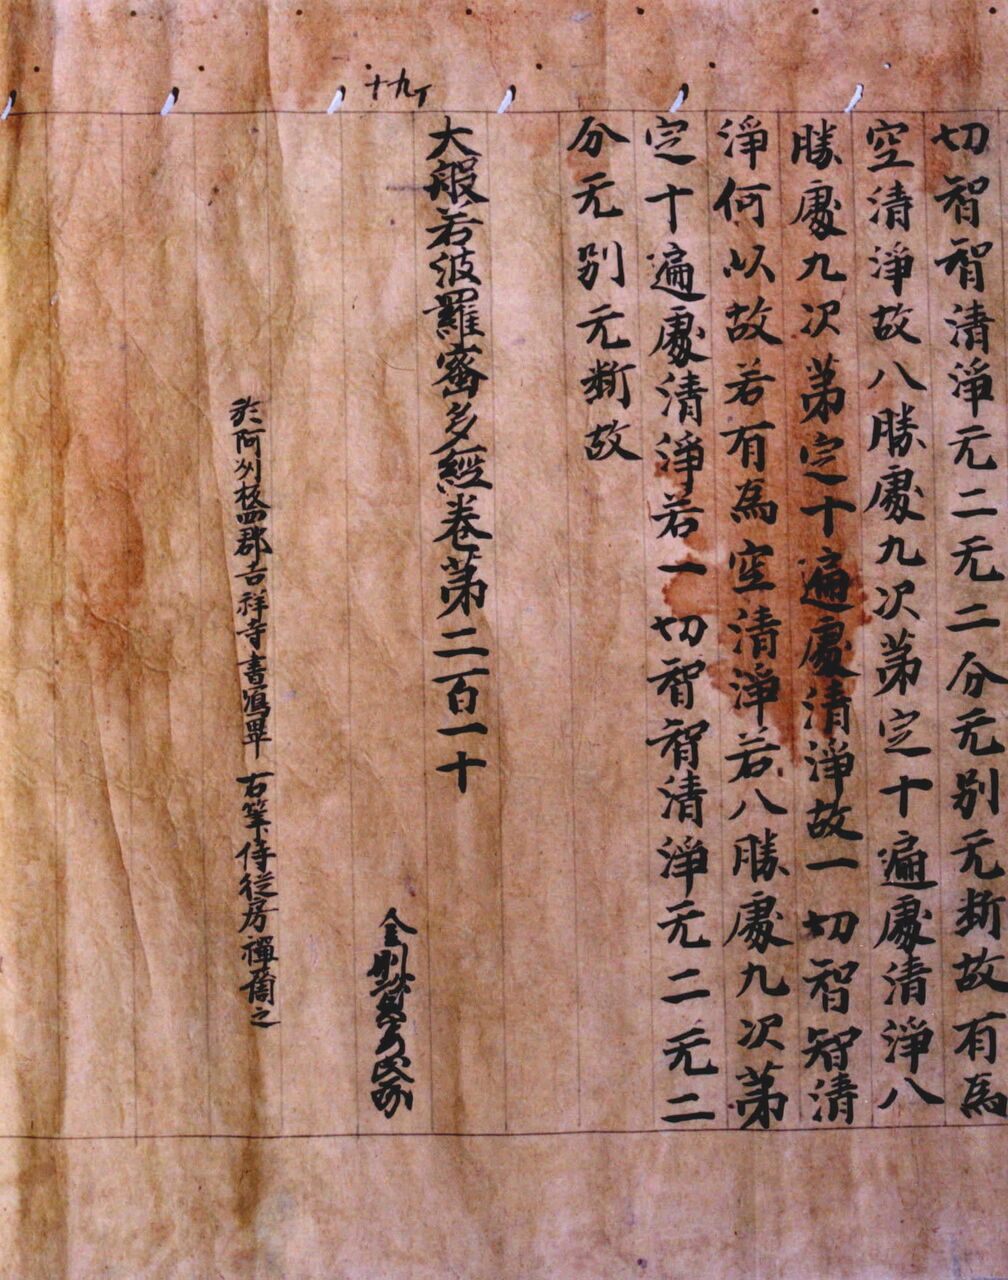 切智智清淨无二无二分无別无断故有為
空清淨故八勝處九次第定十遍處清淨八
勝處九次第定十遍處清淨故一切智智清
淨何以故若有為空清淨若八勝處九次第
定十遍處清淨若一切智智清淨无二无二
分无別无断故
十九丁
大般若波羅蜜多經卷第二百一十
金剛
於阿州板西郡吉祥寺書寫畢 右筆侍従房禪